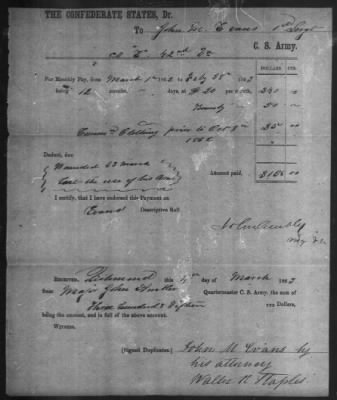 THE CONFEDERATE STATES, Dr.
To John M. Evans 1st Sergt
Co E 42nd Va C. S. Army.
DOLLARS CTS.
For Monthly Pay, from March 1st 1862 to Feby 28" 1863
being 12 months, days, at $ 20 per month, 240 00
Bounty 50 "
Comm'n Clothing prior to Oct 8th 25 00
1862
Deduct, due
Wounded 23 March
Lost the use of his Arm Amount paid, $315 00
I certify, that I have endorsed this Payment on
Evans Descriptive Roll.
John Ambler
Maj
RECEIVED, Richmond this 4th day of March 1863
from Major John Ambler Quartermaster C. S. Army, the sum of
Three hundred & Fifteen Dollars,
being the amount, and in full of the above account.
WITNESS.
(Signed Duplicates)
John M Evans by
his attorney
Waller R Staples